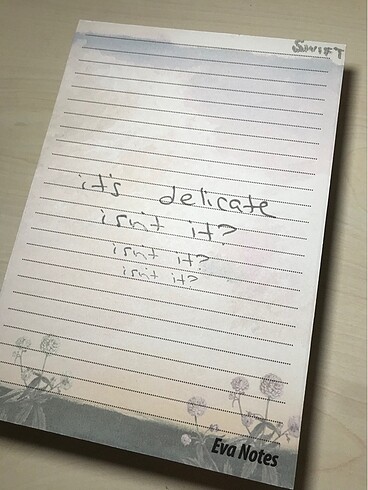 SWIFT
it's delicate
isn't it?
isn't it?
isn't it?
Eva Notes